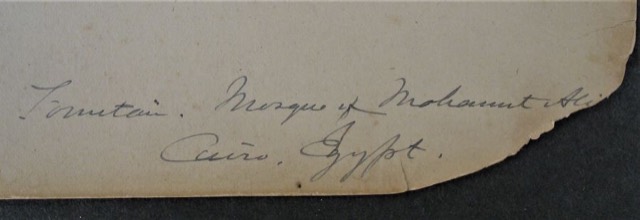 Fountain. Mosque of Mohamet Ali
Cairo. Egypt.